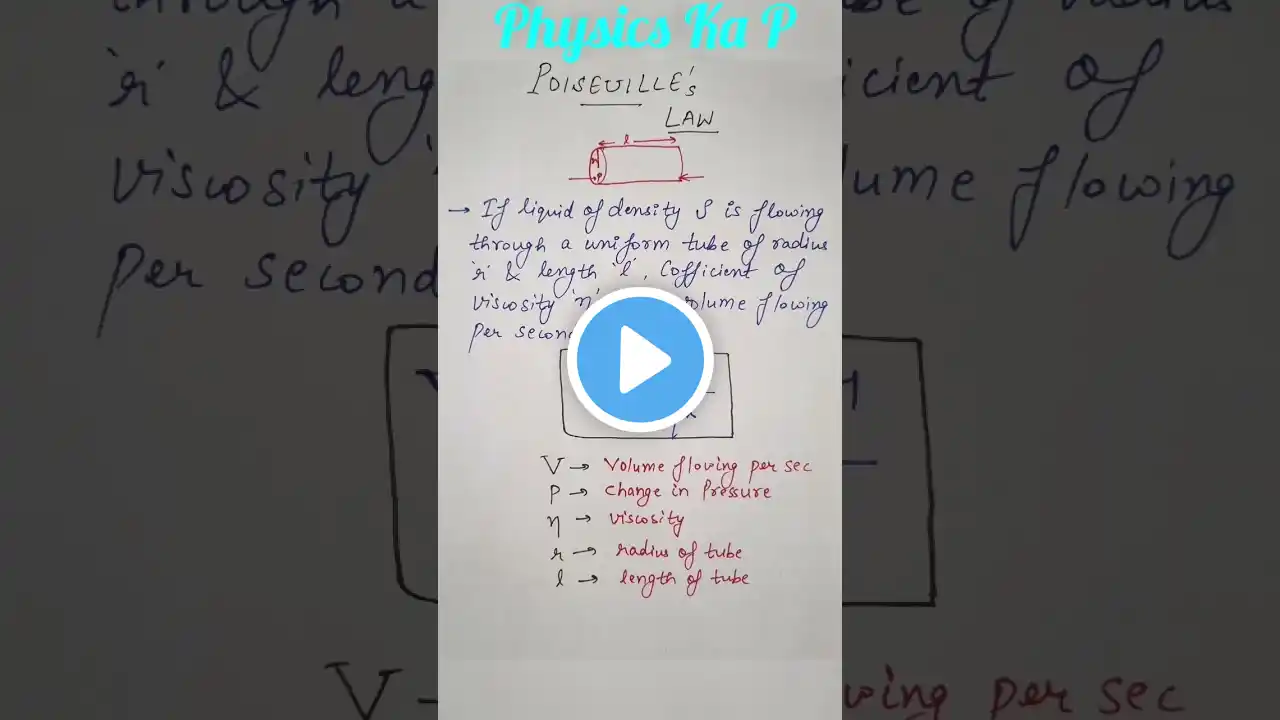 Physics Ka P
POISEUILLE's
LAW
l
r
→ If liquid of density ρ is flowing
through a uniform tube of radius
'r' & length 'l', Cofficient of
viscosity 'η' volume flowing
per second
V → Volume flowing per sec
P → change in Pressure
η → viscosity
r → radius of tube
l → length of tube